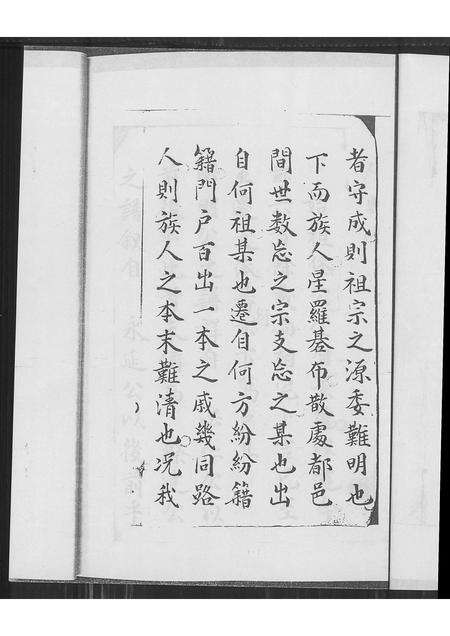 者守成則祖宗之源委難明也
下而族人星羅碁布散處都邑
間世數忘之宗支忘之某也出
自何祖某也遷自何方紛紛籍
籍門户百出一本之戚幾同路
人則族人之本末難清也况我